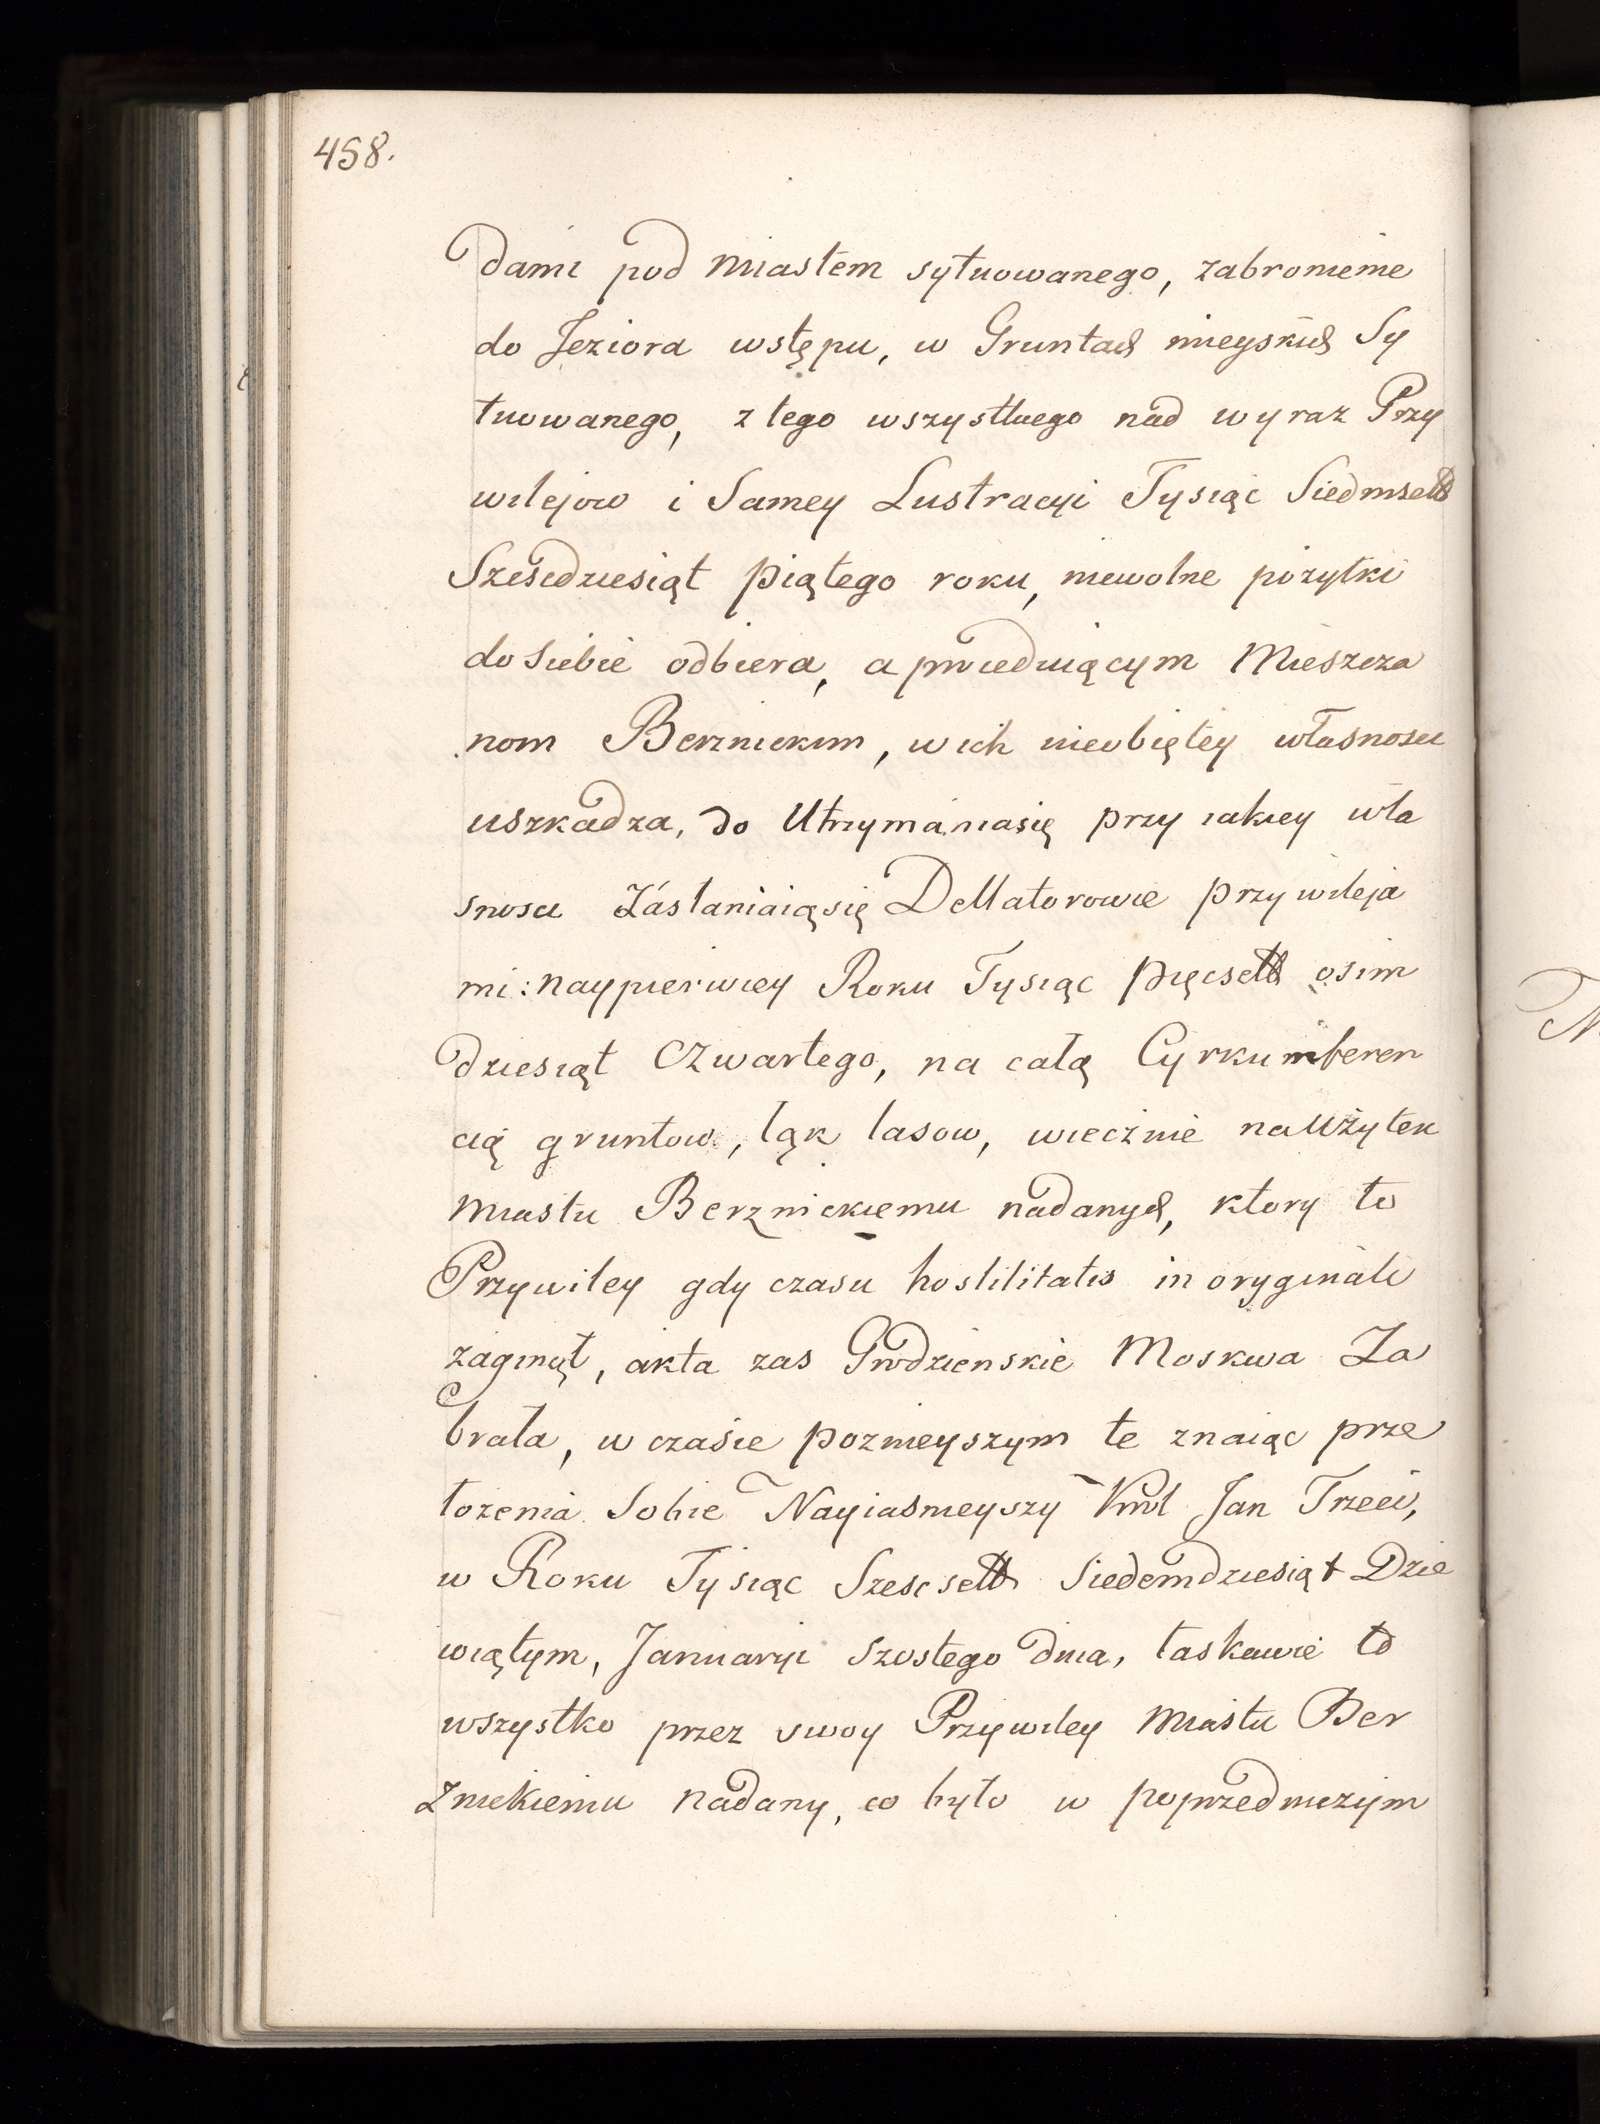 458.
dami pod Miastem sytuowanego, zabronienie
do Jeziora wstępu, w Gruntach mieyskich Sy
tuowanego, z tego wszystkiego nad wyraz Przy
wilejow i Samey Lustracyi Tysiąc Siedmset
Szescdziesiąt piątego roku, niewolne pożytki
do Siebie odbiera, a Mieszcza
nom Berznickim, w ich nieobiętey własnosci
uszkadza, do Utrzymania się przy iakiey wła
snosci Zásłaniaią się Dellatorowie przywileja
mi: naypierwiey Roku Tysiąc pięcset osim
dziesiąt Czwartego, na całą Cyrkumferen
cią gruntow, łąk lasow, wiecznie na Użytek
Miastu Berznickiemu nadanych, ktory to
Przywiley gdy czasu hostilitatis in oryginali
zaginął, akta zas Grodzienskie Moskwa Za
brała, w czasie poznieyszym te znaiąc prze
łozenia Sobie Nayiasnieyszy Krol Jan Trzeci,
w Roku Tysiąc Szescset Siedemdziesiąt Dzie
wiątym, Januaryi szostego dnia, łaskawie to
wszystko przez swoy Przywiley Miastu Ber
znickiemu nadany, co było w poprzedniczym